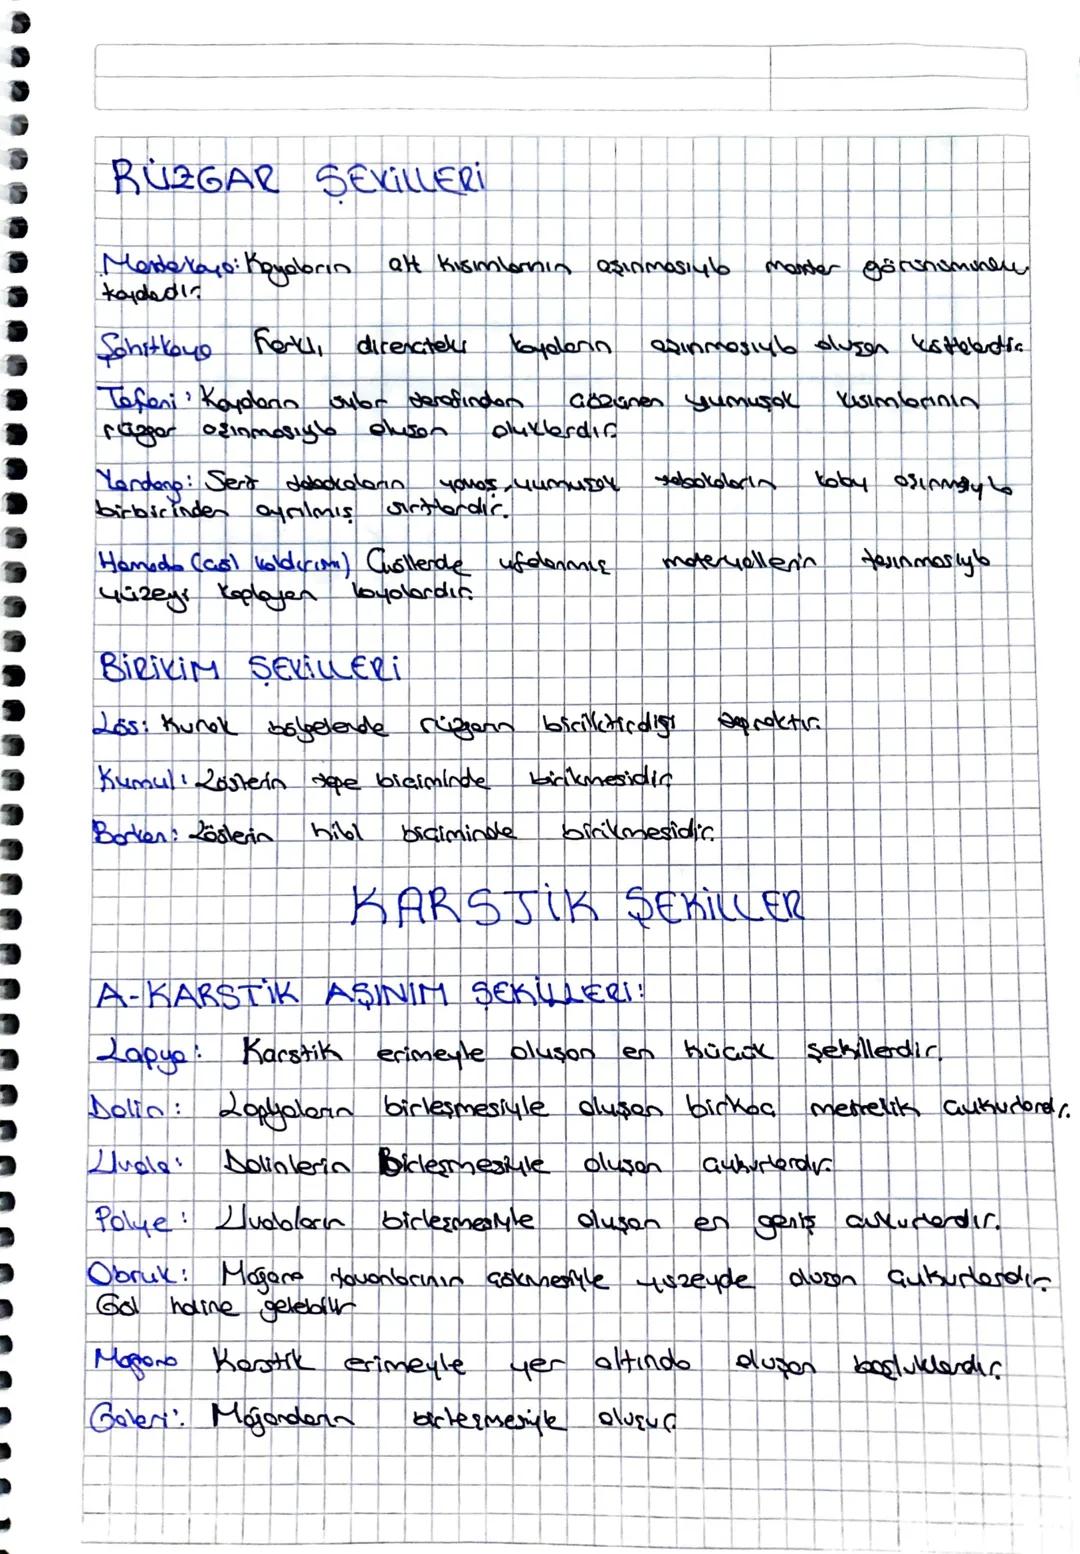 RÜZGAR ŞEKİLLERİ
Mantarkaya: Kayaların alt kısımlarının aşınmasıyla mantar görünümünde
kayadır.
Şahitkaya Farklı dirençteki kayaların aşınmasıyla oluşan kütlelerdir.
Tafoni: Kayaların sular tarafından çözünen yumuşak kısımlarının
rüzgar aşınmasıyla oluşan oluklardır.
Yardang: Sert tabakaların yavaş, yumuşak tabakaların kolay aşınmayla
birbirinden ayrılmış sırtlardır.
Hamada (çöl kaldırımı) Çöllerde ufalanmış materyallerin taşınmasıyla
yüzeyi kaplayan kayalardır.
BİRİKİM ŞEKİLLERİ
Löss: Kurak bölgelerde rüzgarın biriktirdiği topraktır.
Kumul: Löslerin tepe biçiminde birikmesidir.
Barkan: Löslerin hilal biçiminde birikmesidir.
KARSTİK ŞEKİLLER
A-KARSTİK AŞINIM ŞEKİLLERİ:
Lapya: Karstik erimeyle oluşan en küçük şekillerdir.
Dolin: Lapyaların birleşmesiyle oluşan birkaç metrelik çukurlardır.
Uvala: Dolinlerin Birleşmesiyle oluşan çukurlardır.
Polye: Uvalaların birleşmesiyle oluşan en geniş çukurlardır.
Obruk: Mağara tavanlarının çökmesiyle yüzeyde oluşan çukurlardır.
Göl haline gelebilir
Mağara Karstik erimeyle yer altında oluşan boşluklardır.
Galeri: Mağaraların birleşmesiyle oluşur.